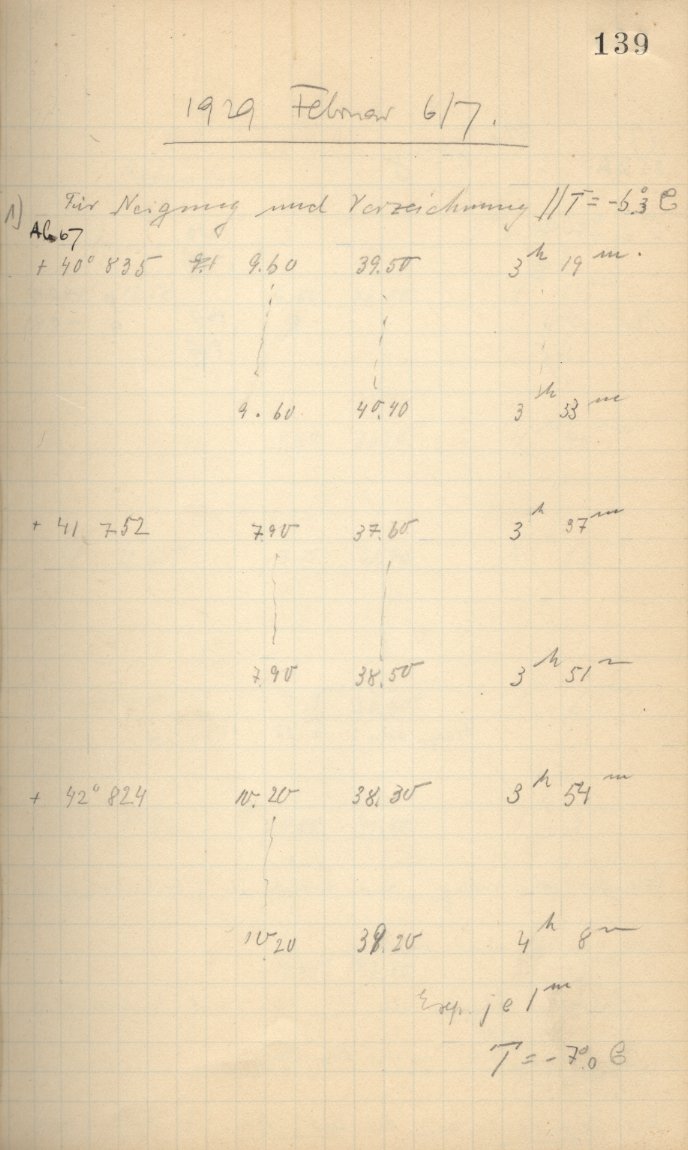 139
1929 Februar 6/7.
1) Für Neigung und Verzeichnung // T = -6°.3 C
+ 40° 835 9.60 39.50 3h 19m.
9.60 40.40 3h 33m
+ 41 752 7.90 37.60 3h 37m
7.90 38.50 3h 51m
+ 42° 824 10.20 38.30 3h 54m
10.20 39.20 4h 8m
Exp. je 1m
T = - 7°.0 C